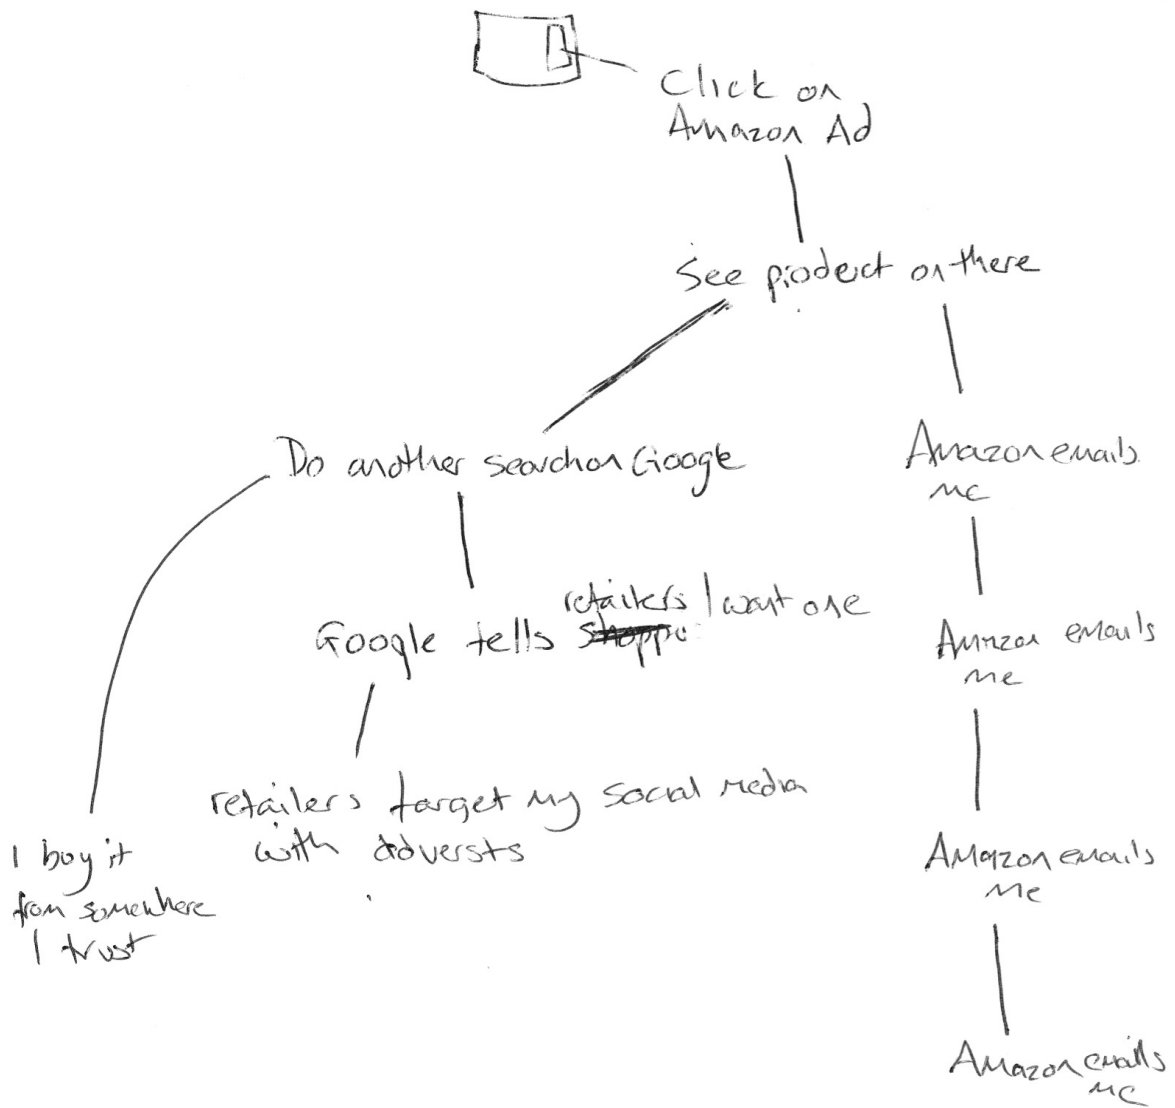 Click on
Amazon Ad
See product on there
Do another search on Google
Amazon emails
me
retailers I want one
Google tells
Amazon emails
me
retailers target my social media
with adversts
I buy it
from somewhere
I trust
Amazon emails
me
Amazon emails
me